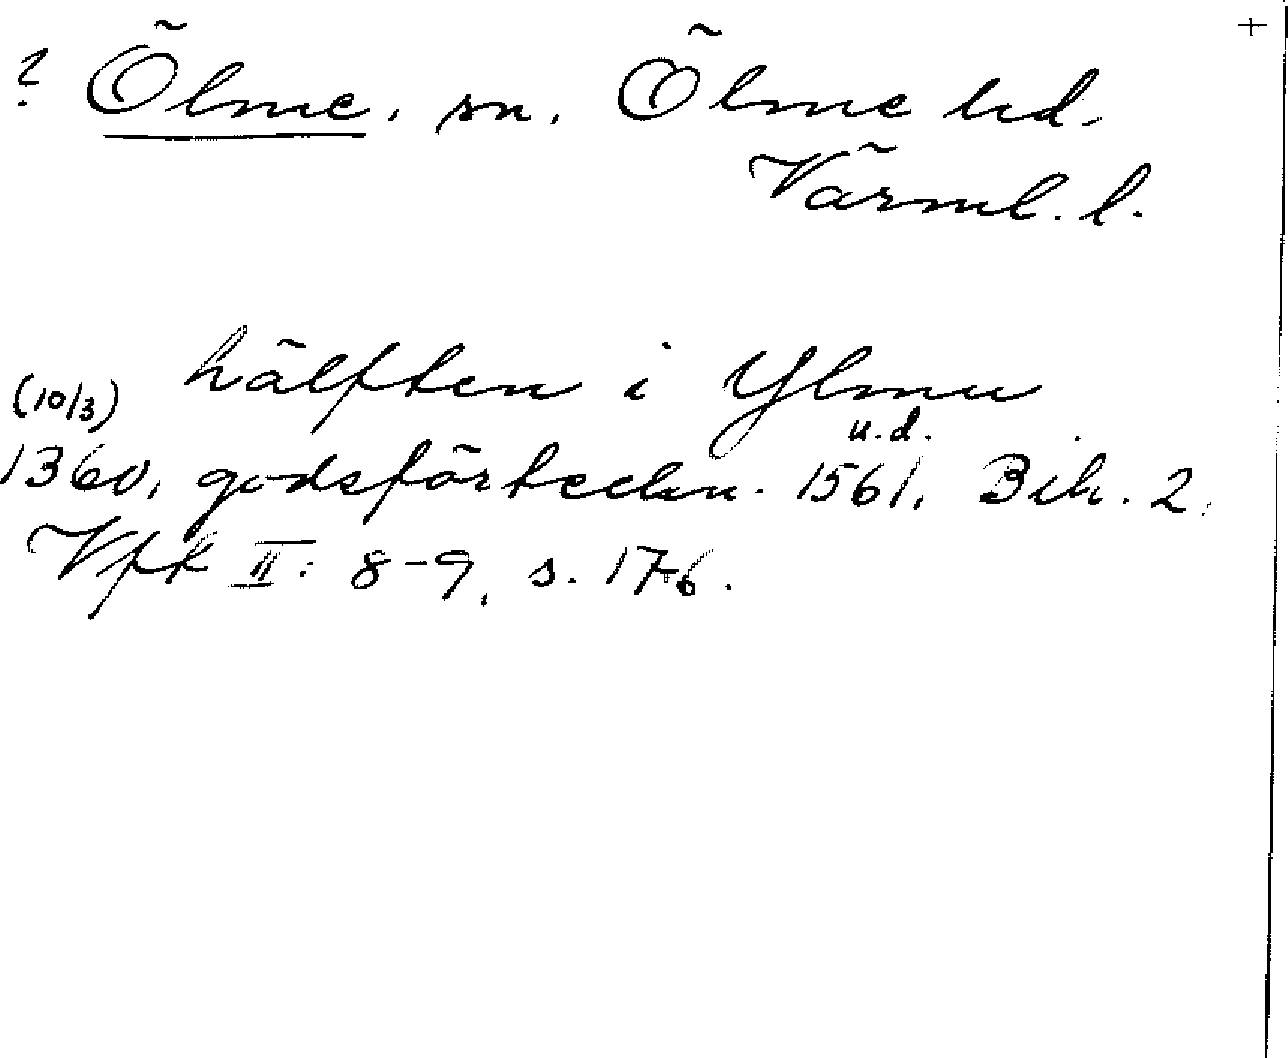 +
? Ölme, sn, Ölme hd.
Värml. l.
hälften i Ylmu
(10/3)
u.d.
1360, godsförteckn. 1561, Bih. 2,
Vfk II: 8-9, s. 176.